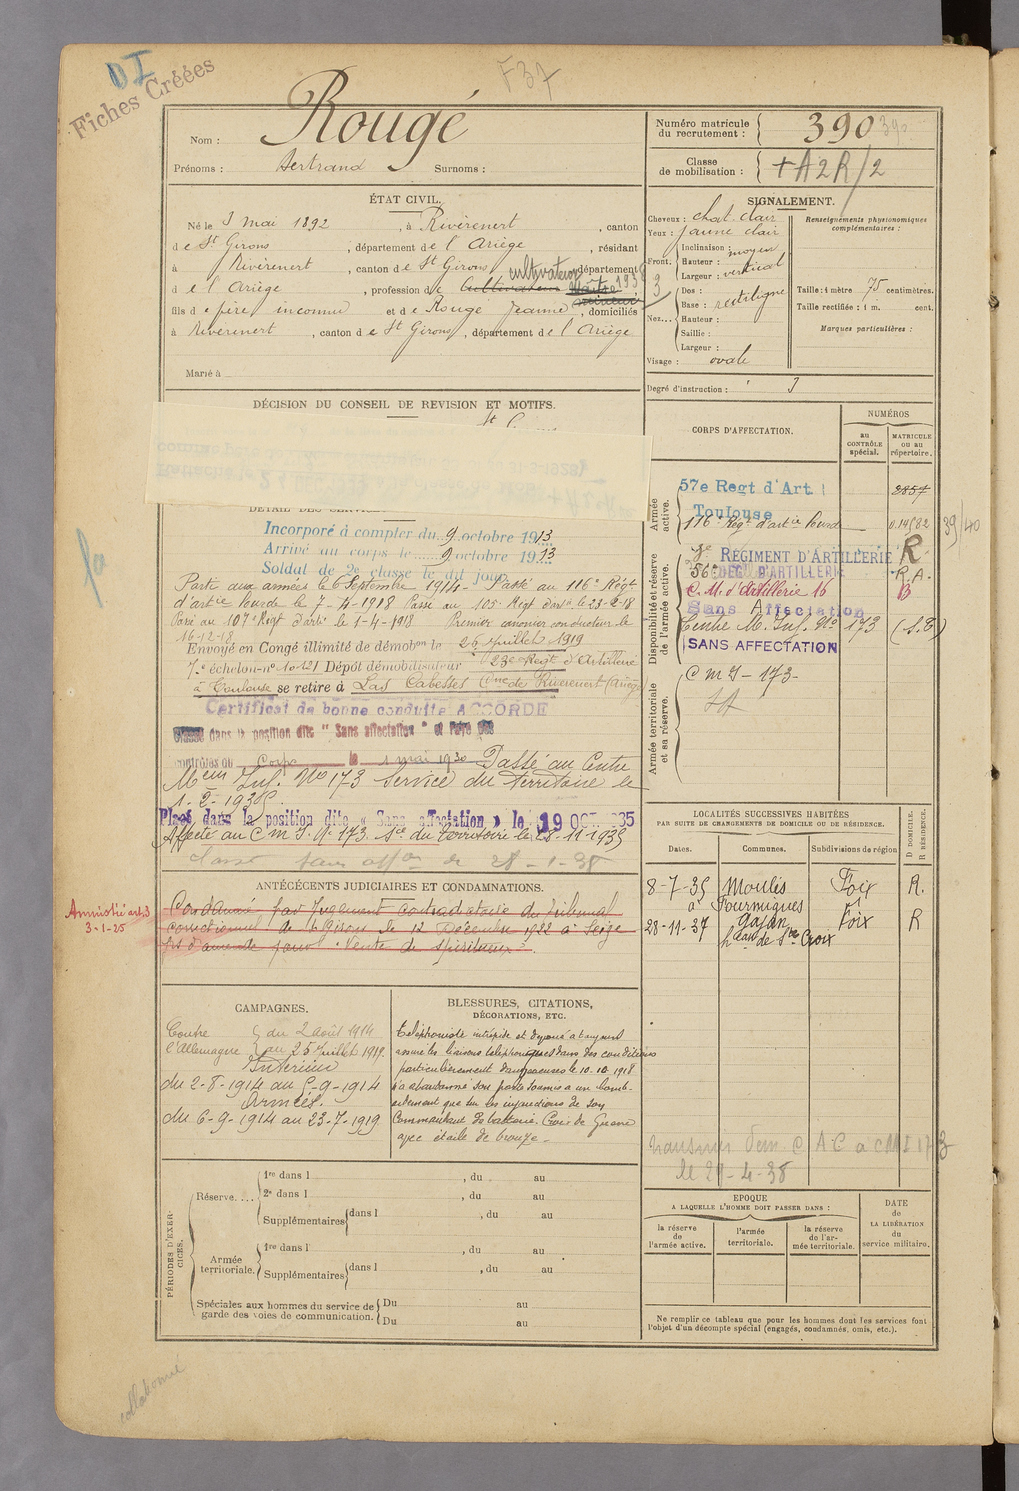 DI
Fiches Créées
F37
Nom : Rougé
Prénoms : Bertrand Surnoms :
Numéro matricule du recrutement : 390
Classe de mobilisation : +A2R/2
ÉTAT CIVIL.
Né le 3 mai 1892, à Rivèrenert, canton
de St Girons, département de l'Ariège, résidant
à Rivèrenert, canton de St Girons, département
de l'Ariège, profession de cultivateur
fils de père inconnu et de Rouge Jeanne, domiciliés
à Rivèrenert, canton de St Girons, département de l'Ariège
Marié à
SIGNALEMENT.
Cheveux : chat. clair
Yeux : jaune clair
Front. Inclinaison : moyen
Hauteur : vertical
Largeur :
Nez... Dos :
Base : rectiligne
Hauteur :
Saillie :
Largeur :
Visage : ovale
Renseignements physionomiques complémentaires :
Taille : 1 mètre 75 centimètres.
Taille rectifiée : 1 m. cent.
Marques particulières :
Degré d'instruction : 3
DÉCISION DU CONSEIL DE REVISION ET MOTIFS.
Incorporé à compter du 9 octobre 1913
Arrivé au corps le 9 octobre 1913
Soldat de 2e classe le dit jour
Parti aux armées le 6 Septembre 1914 - Passé au 116e Régt
d'artie lourde le 7-4-1918 Passé au 105e Régt d'artie le 23-2-18
Passé au 107e Régt d'artie le 1-4-1918 Premier canonier conducteur le
16-12-18
Envoyé en Congé illimité de démobon le 25 juillet 1919
7e échelon-no 10.421 Dépôt démobilisateur 23e Regt d'Artillerie
à Toulouse se retire à Las Cabesses Cne de Rivèrenert (Ariège)
Certificat de bonne conduite ACCORDE
Classé dans la position dite " Sans affectation " et rayé des
contrôles du Corps le 1 mai 1930 Passé au Centre
Mein Inf. No 173 Service du Territoire le
1-2-1935.
Placé dans la position dite « Sans affectation » le 19 OCT 1935
Affecté au C M I. No 173. Sce du Territoire le 28-11-1935
Classé sans affon le 28-1-38
CORPS D'AFFECTATION.
NUMÉROS
au CONTRÔLE spécial.
MATRICULE ou au répertoire.
Armée active.
57e Regt d'Art. 2857
Toulouse
116e Régt d'artie lourde 0.14582 39/40
Disponibilité et réserve de l'armée active.
REGIMENT D'ARTILLERIE R
56e REG. D'ARTILLERIE R.A.
C. M. d'Artillerie 16 B
Sans Affectation
Centre M. Inf. No 173 (S.T)
SANS AFFECTATION
Armée territoriale et sa réserve.
C m I - 173-
ANTÉCÉDENTS JUDICIAIRES ET CONDAMNATIONS.
Amnistié art. 3
3-1-25
Condamné par Jugement contradictoire du Tribunal
correctionnel de St Girons le 12 Décembre 1922 à Seize
frs d'amende pour : Vente de spiritueux.
LOCALITÉS SUCCESSIVES HABITÉES
PAR SUITE DE CHANGEMENTS DE DOMICILE OU DE RÉSIDENCE.
Dates. Communes. Subdivisions de région D DOMICILE. R RÉSIDENCE.
8-7-35 Moulis Foix R.
à Fourmigues
28-11-37 Gajan Foix R
heau de Ste Croix
transmis Dem. C A C à CMI 173
le 21-4-38
CAMPAGNES.
Contre l'Allemagne du 2 août 1914
au 25 Juillet 1919.
Intérieur
du 2-8-1914 au 5-9-1914
Armées.
du 6-9-1914 au 23-7-1919
BLESSURES, CITATIONS,
DÉCORATIONS, ETC.
téléphoniste intrépide et dévoué a toujours
assuré les liaisons téléphoniques dans des conditions
particulièrement dangereuses le 10.10.1918
n'a abandonné son poste soumis à un bomb-
ardement que sur les injonctions de son
Commandant de batterie. Croix de Guerre
avec étoile de bronze -
PÉRIODES D'EXERCICES.
Réserve.... 1re dans l , du au
2e dans l , du au
Supplémentaires dans l , du au
Armée territoriale. 1re dans l , du au
Supplémentaires dans l , du au
Spéciales aux hommes du service de garde des voies de communication. Du au
Du au
EPOQUE
A LAQUELLE L'HOMME DOIT PASSER DANS :
la réserve de l'armée active.
l'armée territoriale.
la réserve de l'armée territoriale.
DATE de LA LIBÉRATION du service militaire.
Ne remplir ce tableau que pour les hommes dont les services font
l'objet d'un décompte spécial (engagés, condamnés, omis, etc.).
collationné